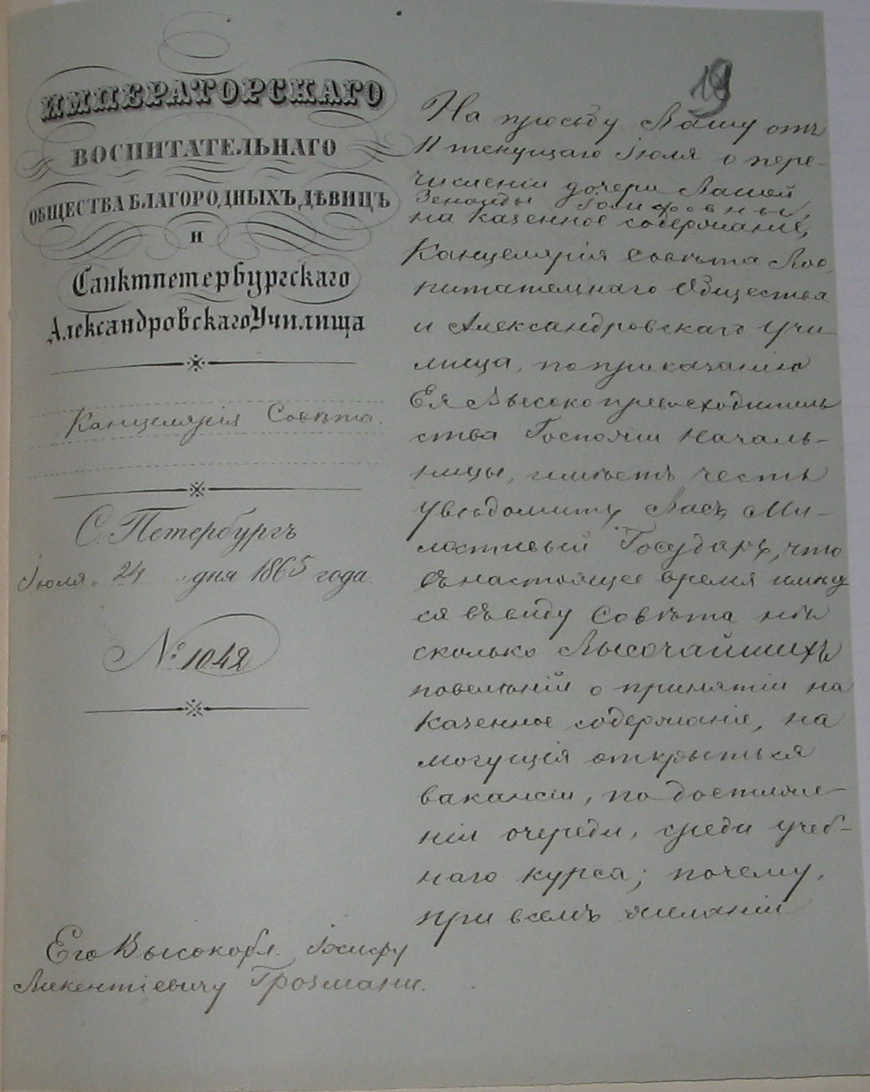 19
ИМПЕРАТОРСКАГО
ВОСПИТАТЕЛЬНАГО
ОБЩЕСТВА БЛАГОРОДНЫХЪ ДѢВИЦЪ
И
Санктпетербургскаго
Александровскаго Училища
Канцелярія Совѣта.
С. Петербургъ
Іюля 24 дня 1865 года.
№ 1042
На просьбу Вашу отъ
11 текущаго Іюля о пере-
численіи дочери Вашей
Зенаиды
на казенное содержаніе,
Канцелярія Совѣта Вос
питательнаго Общества
и Александровскаго Учи-
лища, по приказанію
Ея Высокопревосходитель
ства Госпожи Началь-
ницы, имѣетъ честь
увѣдомить Васъ, Ми-
лостивый Государь, что
въ настоящее время имѣю
ся въ виду Совѣта нѣ
сколько Высочайшихъ
повелѣній о принятіи на
казенное содержаніе, на
могущія открыться
вакансіи, по достиже-
ніи очереди, среди учеб-
наго курса; почему,
при всемъ желаніи
Его Высокобл. Іосифу
Викентіевичу